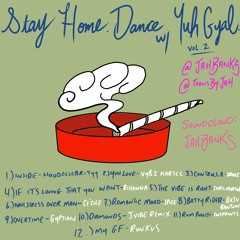 Stay Home: Dance w/ Yuh Gyal
VOL. 2
@JAHBANKS
@TOONSBYJAH
SOUNDCLOUD:
JAHBANKS
1.) INSIDE - MOODCELEBRITYY 2.) YUH LOVE - VYBZ KARTEL 3.) CONTROLLA - DRAKE
4.) IF IT'S LOVING THAT YOU WANT - RIHANNA 5.) THE VIBE IS RIGHT -
6.) NAH STRESS OVER MAN - 7.) ROMANTIC MOOD - 8.) BATTY RIDER - BUJU BANTON
9.) OVERTIME - GYPTIAN 10.) DIAMONDS - JVIBE REMIX 11.) RUM PUNCH -
12.) MY GF - RUNKUS